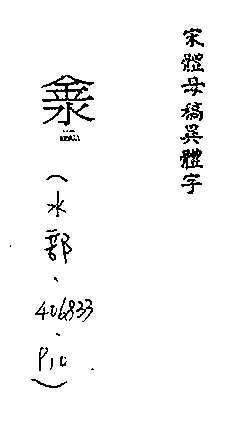 宋體母稿異體字
(水部、406833、P10)